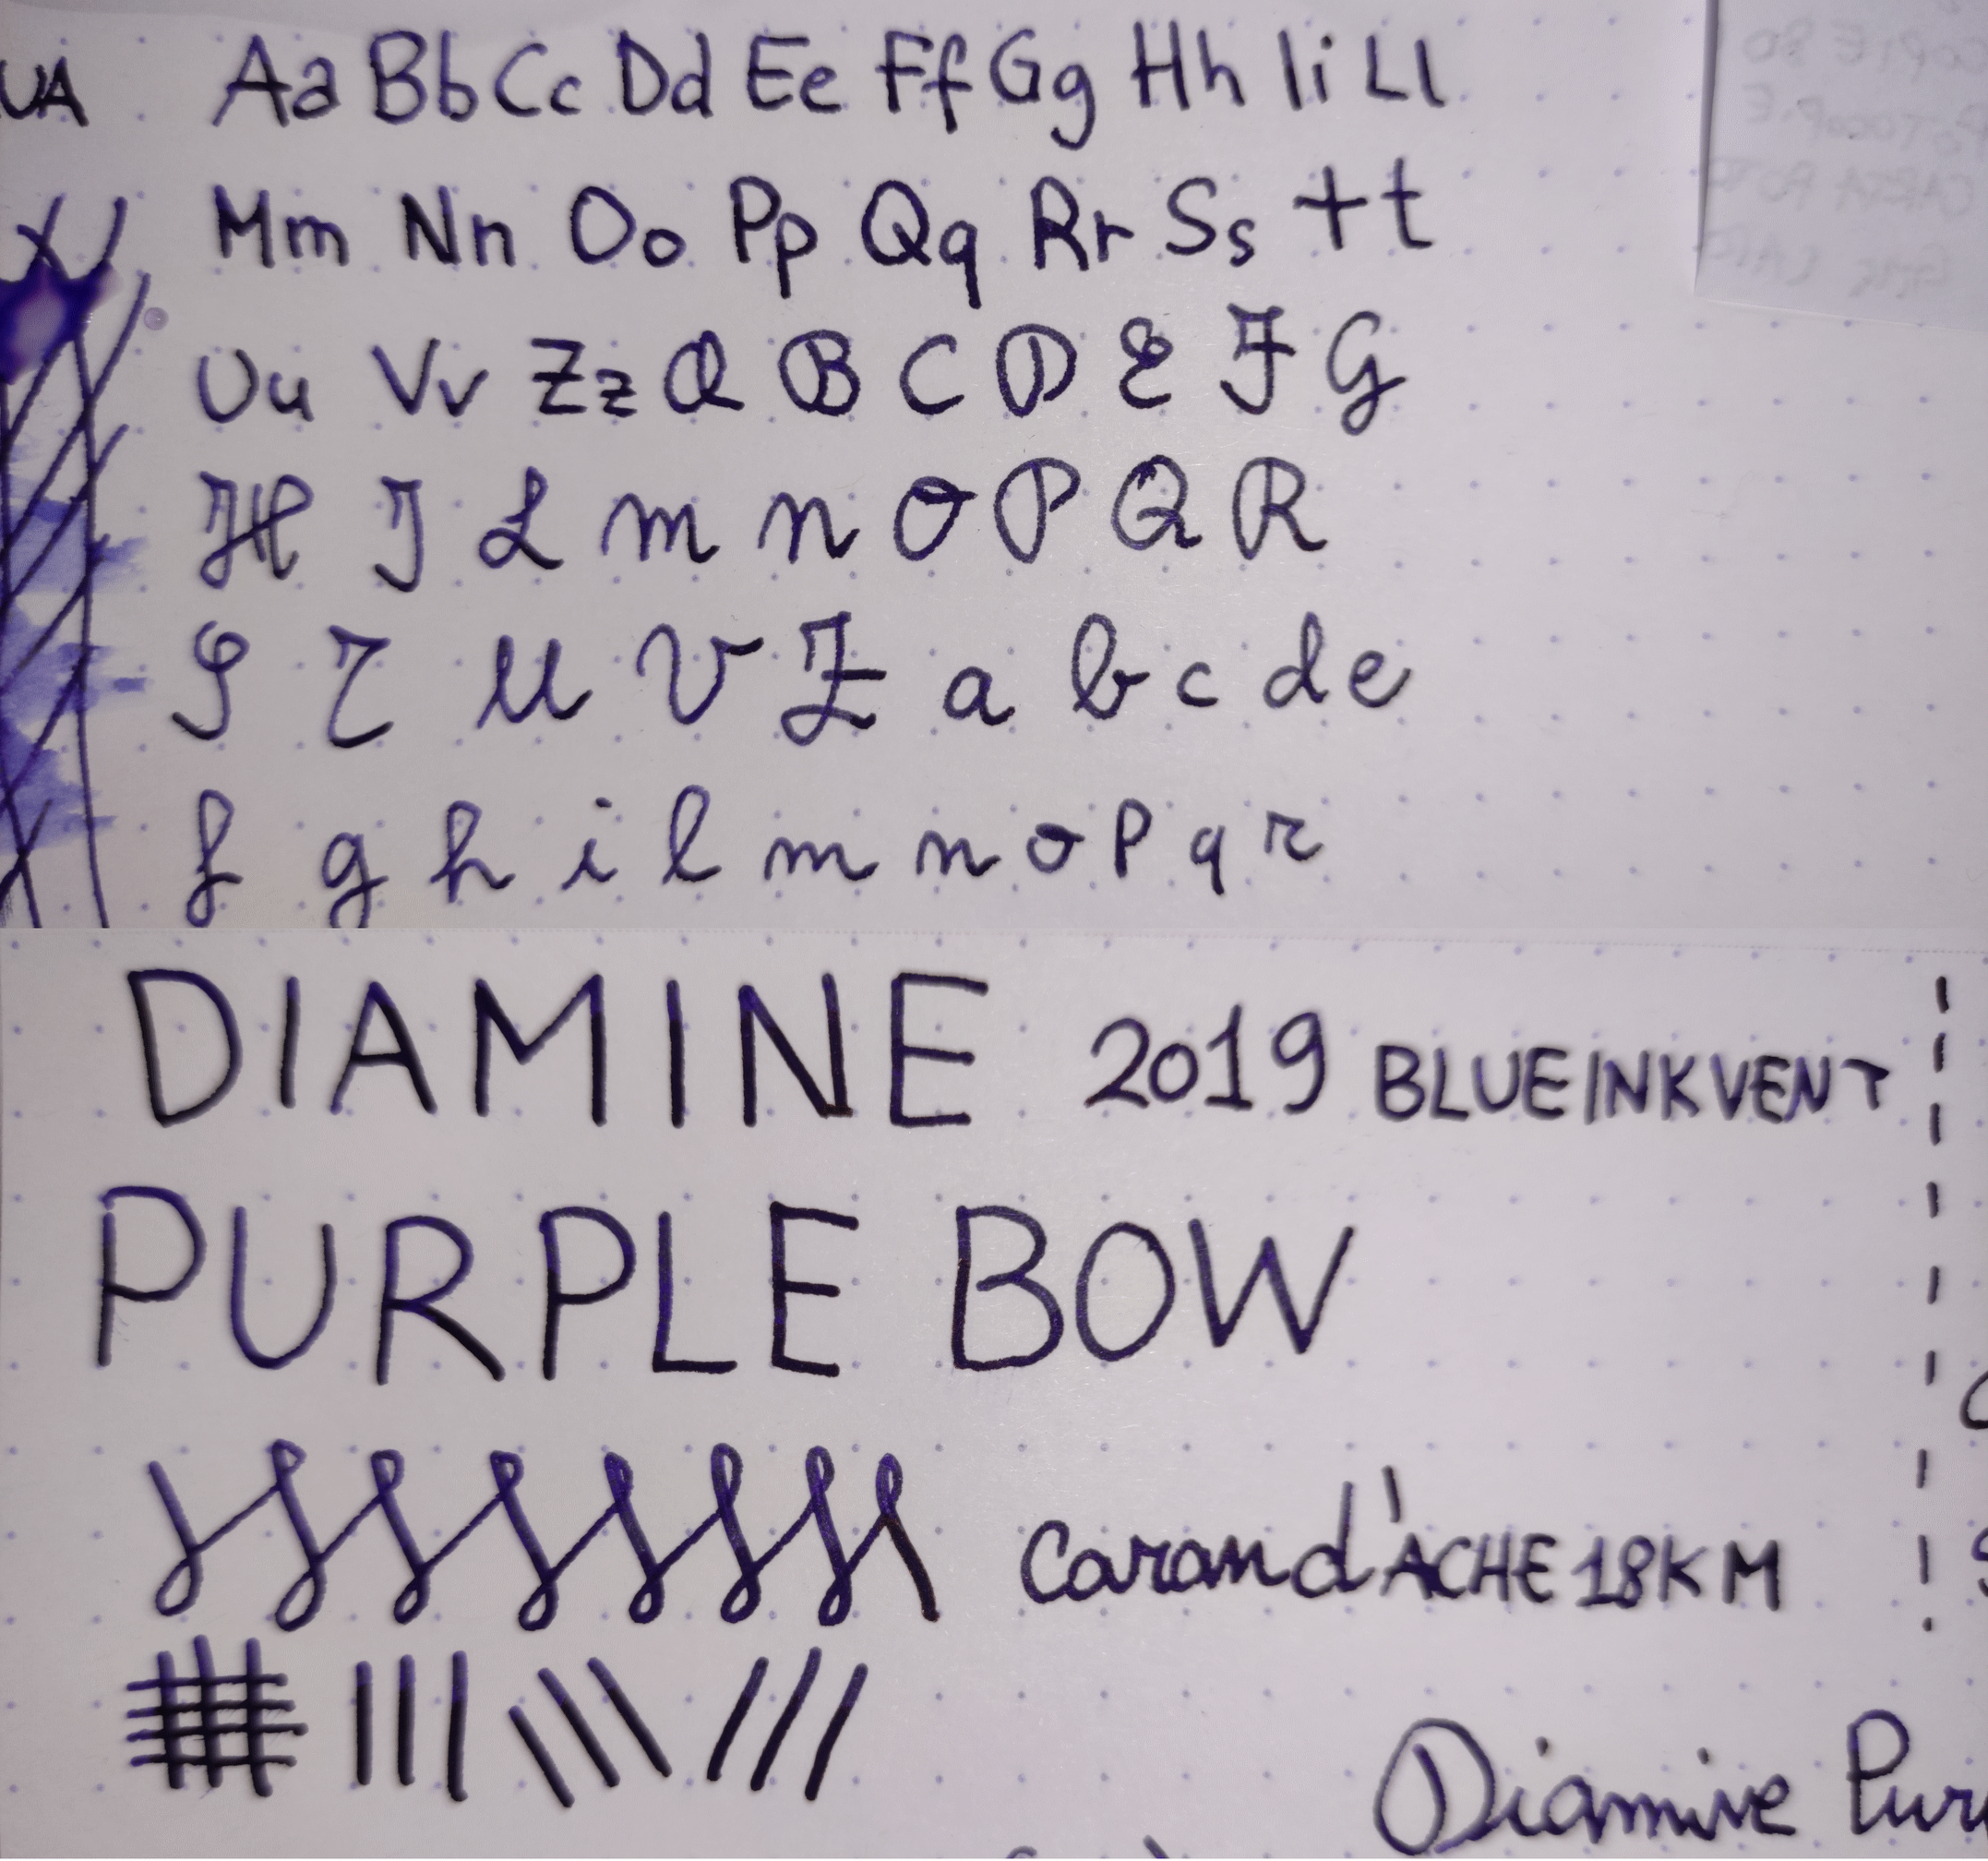 UA Aa Bb Cc Dd Ee Ff Gg Hh Ii Ll
Mm Nn Oo Pp Qq Rr Ss Tt
Uu Vv Zz A B C D E F G
H I L m n O P Q R
S T U V Z a b c d e
f g h i l m n o p q r
DIAMINE 2019 BLUE INKVENT
PURPLE BOW
Caran d'ACHE 18K M
Diamine Pur